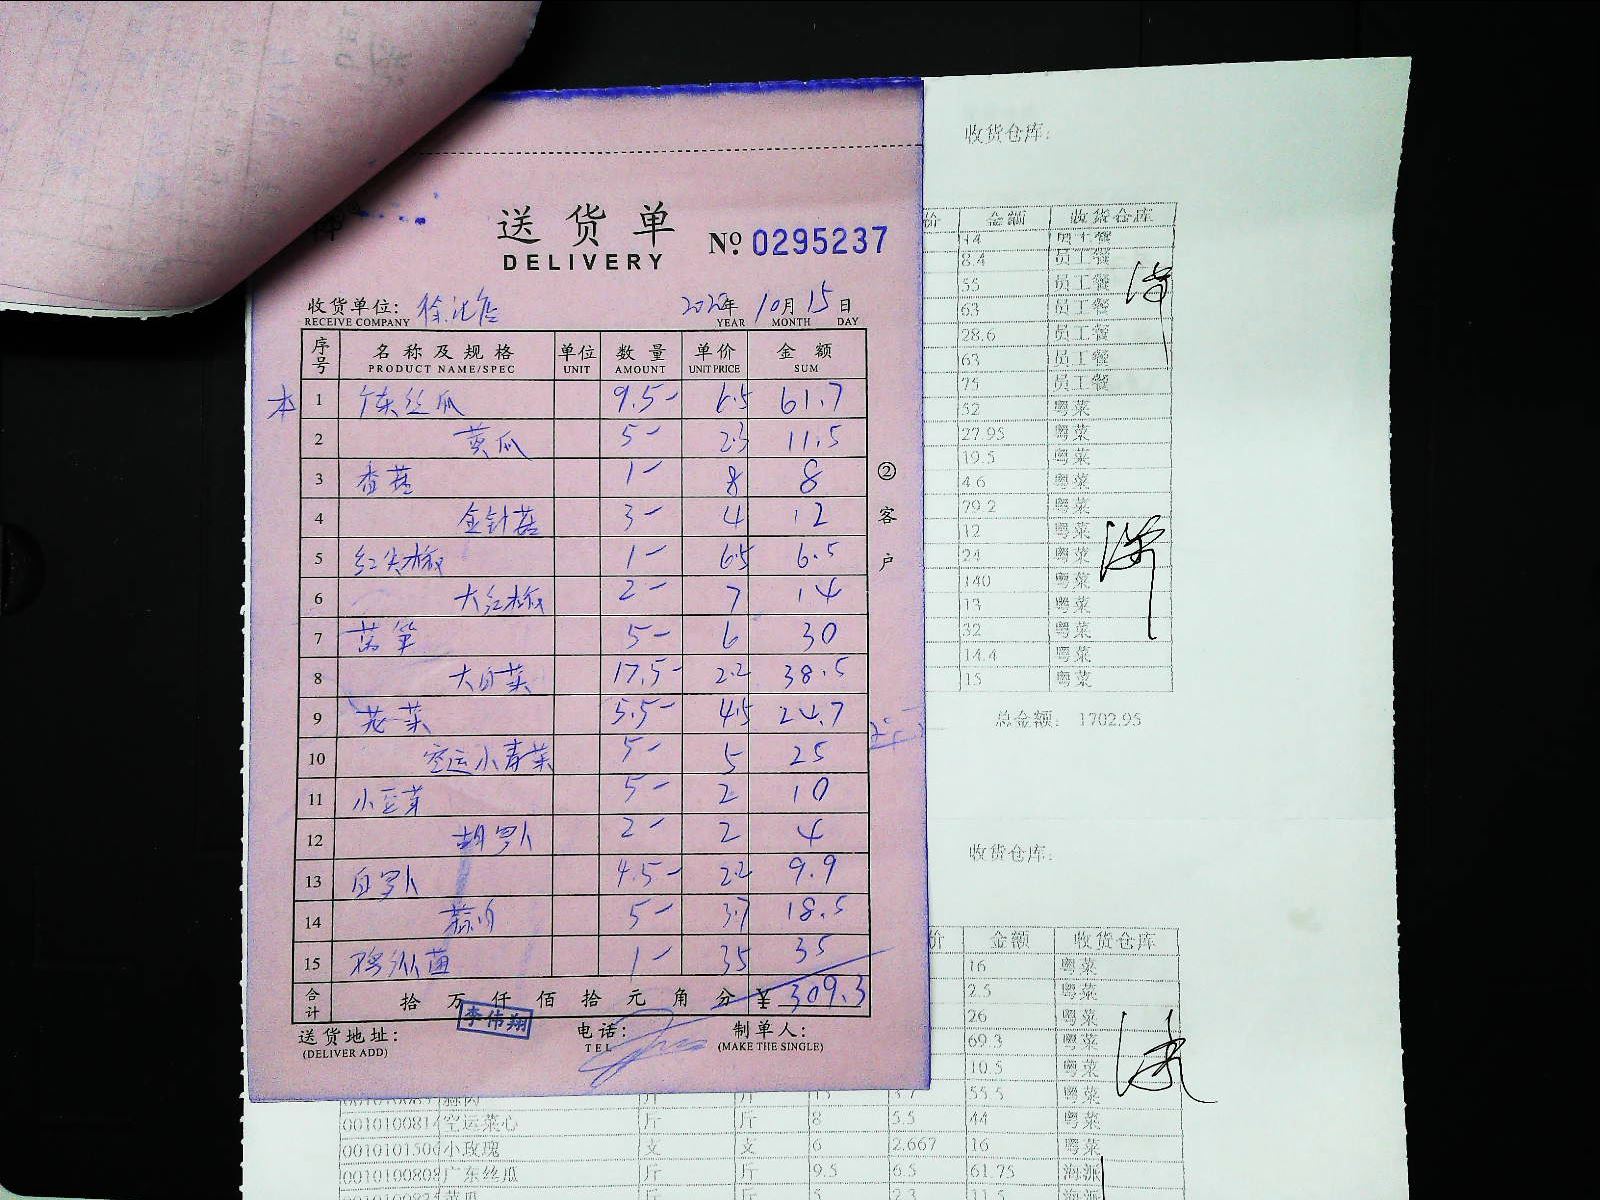 收货仓库:
送货单
№ 0295237
DELIVERY
收货单位:
2020年 10月 15日
RECEIVE COMPANY YEAR MONTH DAY
序号 名称及规格 单位 数量 单价 金额
PRODUCT NAME/SPEC UNIT AMOUNT UNIT PRICE SUM
本 1 广东丝瓜 9.5- 6.5 61.7
2 黄瓜 5- 2.3 11.5
3 香菇 1- 8 8
4 金针菇 3- 4 12
5 红尖椒 1- 6.5 6.5
6 大红椒 2- 7 14
7 莴笋 5- 6 30
8 大白菜 17.5- 2.2 38.5
9 花菜 5.5- 4.5 24.7
10 空运小青菜 5- 5 25
11 小豆芽 5- 2 10
12 胡罗卜 2- 2 4
13 白罗卜 4.5- 2.2 9.9
14 蒜肉 5- 3.7 18.5
15 鸡枞菌 1- 35 35
合计 拾万仟佰拾元角分 ¥ 309.3
李伟翔
送货地址: 电话: 制单人:
(DELIVER ADD) TEL (MAKE THE SINGLE)
②客户
价 金额 收货仓库
14 员工餐
8.4 员工餐
55 员工餐
63 员工餐
28.6 员工餐
63 员工餐
75 员工餐
52 粤菜
27.95 粤菜
19.5 粤菜
4.6 粤菜
79.2 粤菜
12 粤菜
24 粤菜
140 粤菜
13 粤菜
32 粤菜
14.4 粤菜
15 粤菜
总金额: 1702.95
收货仓库:
价 金额 收货仓库
16 粤菜
2.5 粤菜
26 粤菜
69.3 粤菜
10.5 粤菜
蒜肉 斤 斤 15 3.7 55.5 粤菜
空运菜心 斤 斤 8 5.5 44 粤菜
小玫瑰 支 支 6 2.667 16 粤菜
广东丝瓜 斤 斤 9.5 6.5 61.75 海派
黄瓜 斤 斤 5 2.3 11.5 海派